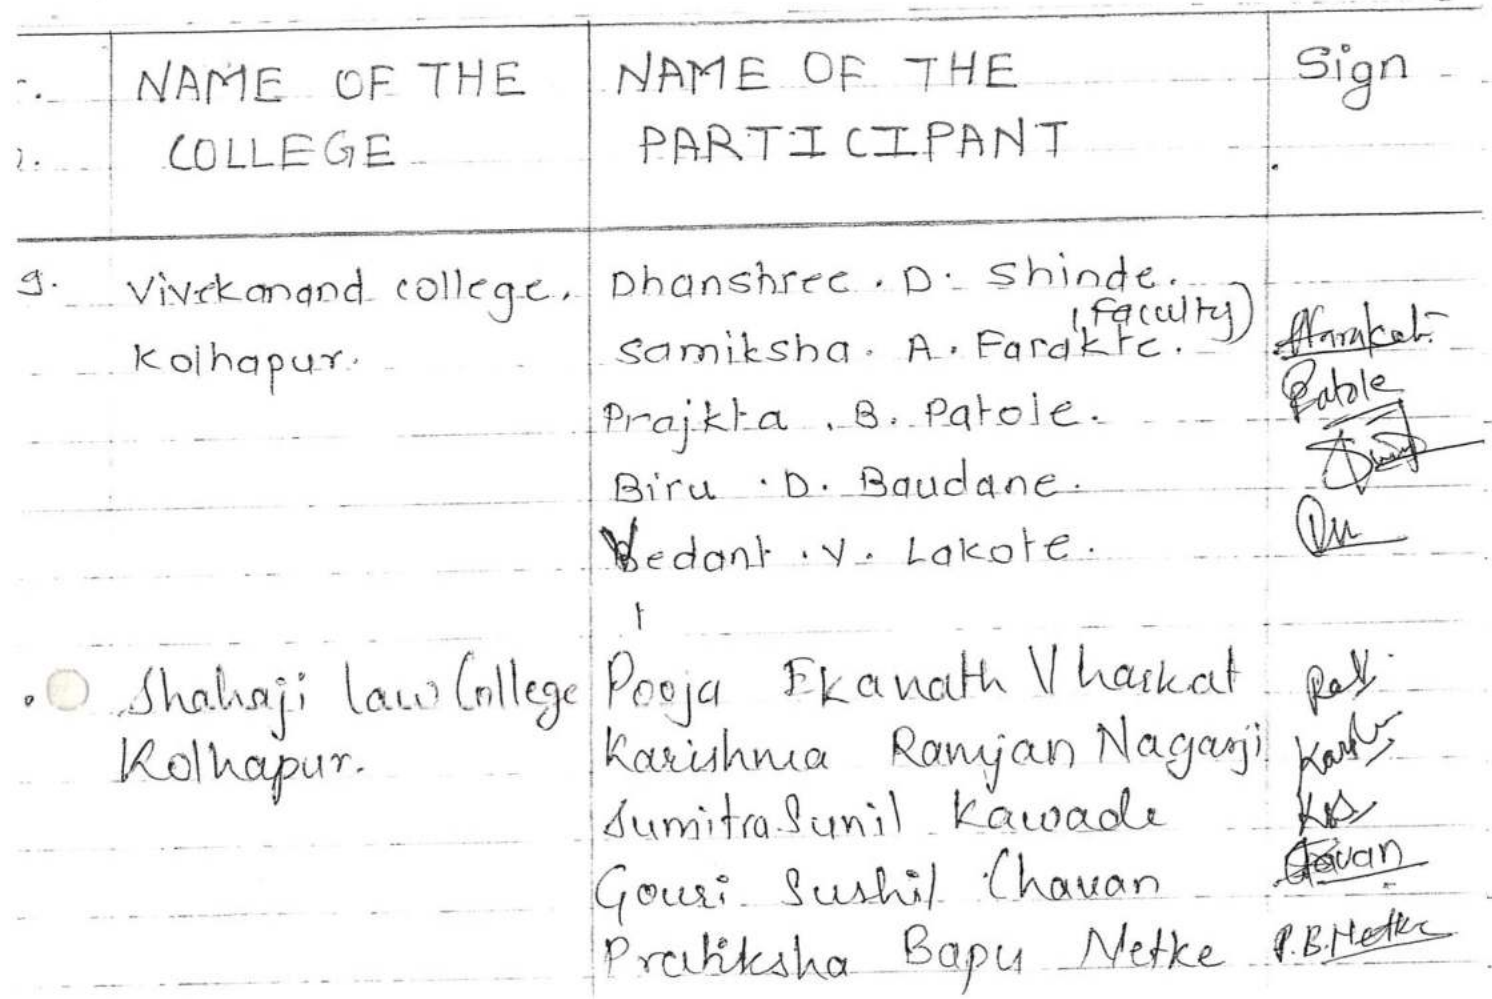 NAME OF THE COLLEGE
NAME OF THE PARTICIPANT
Sign
9. Vivekanand college, Kolhapur.
Dhanshree . D. Shinde. (faculty)
Samiksha . A. Farakte.
Prajkta . B. Patole. Patole
Biru . D. Baudane.
Vedant . V. Lakote.
Shahaji law College Kolhapur.
Pooja Ekanath Vharkat
Karishma Ramjan Nagarji
Sumitra Sunil Kawade
Gouri Sushil Chavan
Pratiksha Bapu Netke P.B.Netke